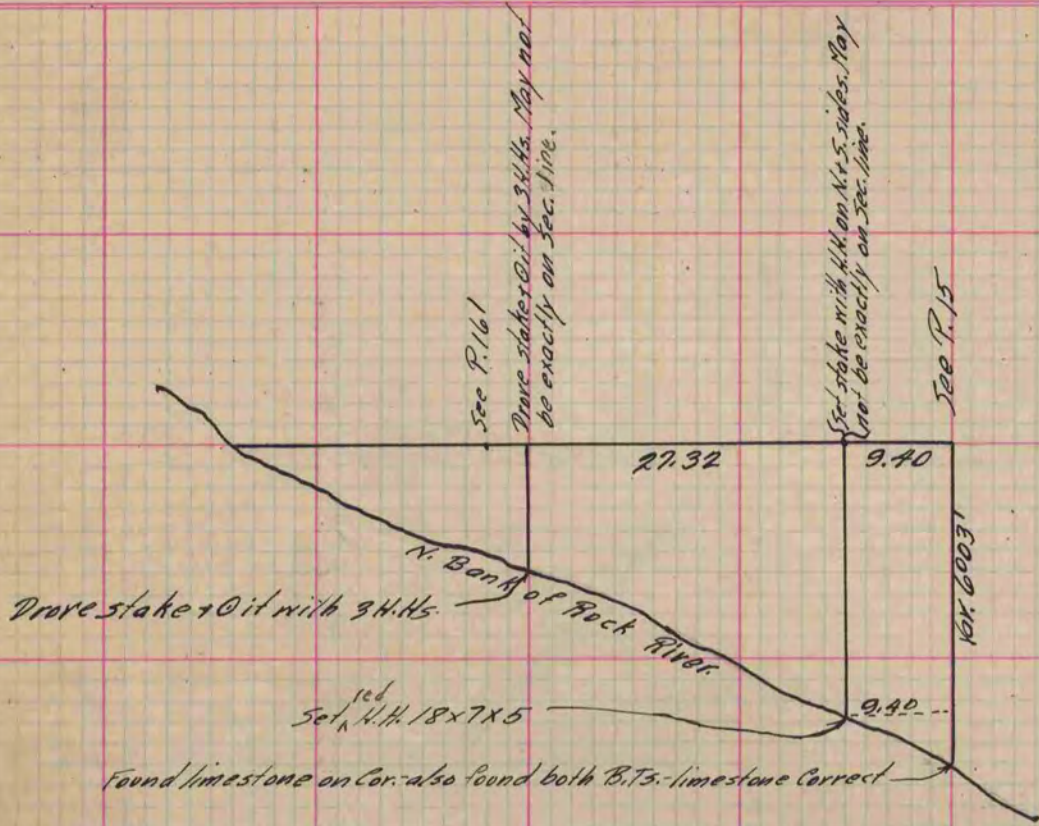 Drove stake & ⊙ it by 3 H.Hs. May not
be exactly on Sec. line.
Set stake with H.H. on N. & S. sides. May
not be exactly on Sec. line.
See P. 161
See P. 15
27.32
9.40
Var. 6°03'
N. Bank of Rock River.
Drove stake & ⊙ it with 3 H.Hs.
red
Set ^ H.H. 18x7x5
9.40
Found limestone on Cor. - also found both B.Ts. - limestone Correct